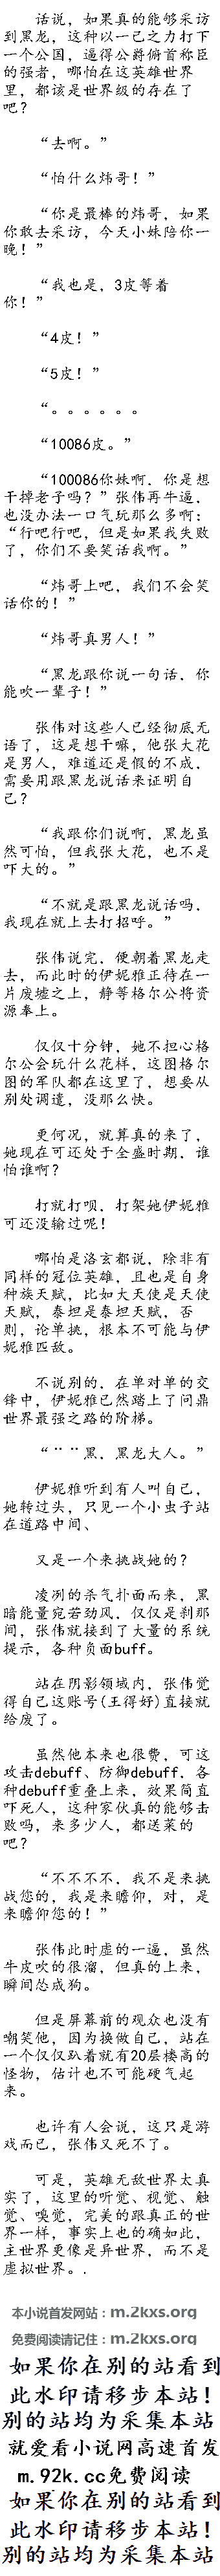 话说，如果真的能够采访
到黑龙，这种以一己之力打下
一个公国，逼得公爵俯首称臣
的强者，哪怕在这英雄世界
里，都该是世界级的存在了
吧？
“去啊。”
“怕什么炜哥！”
“你是最棒的炜哥，如果
你敢去采访，今天小妹陪你一
晚！”
“我也是，3皮等着
你！”
“4皮！”
“5皮！”
“。。。。。。
“10086皮。”
“100086你妹啊，你是想
干掉老子吗？”张伟再牛逼，
也没办法一口气玩那么多啊：
“行吧行吧，但是如果我失败
了，你们不要笑话我啊。”
“炜哥上吧，我们不会笑
话你的！”
“炜哥真男人！”
“黑龙跟你说一句话，你
能吹一辈子！”
张伟对这些人已经彻底无
语了，这是想干嘛，他张大花
是男人，难道还是假的不成，
需要用跟黑龙说话来证明自
己？
“我跟你们说啊，黑龙虽
然可怕，但我张大花，也不是
吓大的。”
“不就是跟黑龙说话吗，
我现在就上去打招呼。”
张伟说完，便朝着黑龙走
去，而此时的伊妮雅正待在一
片废墟之上，静等格尔公将资
源奉上。
仅仅十分钟，她不担心格
尔公会玩什么花样，这图格尔
图的军队都在这里了，想要从
别处调遣，没那么快。
更何况，就算真的来了，
她现在可还处于全盛时期，谁
怕谁啊？
打就打呗，打架她伊妮雅
可还没输过呢！
哪怕是洛玄都说，除非有
同样的冠位英雄，且也是自身
种族天赋，比如大天使是天使
天赋，泰坦是泰坦天赋，否
则，论单挑，根本不可能与伊
妮雅匹敌。
不说别的，在单对单的交
锋中，伊妮雅已然踏上了问鼎
世界最强之路的阶梯。
“¨¨黑，黑龙大人。”
伊妮雅听到有人叫自己，
她转过头，只见一个小虫子站
在道路中间、
又是一个来挑战她的？
凌冽的杀气扑面而来，黑
暗能量宛若劲风，仅仅是刹那
间，张伟就接到了大量的系统
提示，各种负面buff。
站在阴影领域内，张伟觉
得自己这账号(王得好)直接就
给废了。
虽然他本来也很费，可这
攻击debuff、防御debuff，各
种debuff重叠上来，效果简直
吓死人，这种家伙真的能够击
败吗，来多少人，都送菜的
吧？
“不不不不，我不是来挑
战您的，我是来瞻仰，对，是
来瞻仰您的！”
张伟此时虚的一逼，虽然
牛皮吹的很溜，但真的上来，
瞬间怂成狗。
但是屏幕前的观众也没有
嘲笑他，因为换做自己，站在
一个仅仅趴着就有20层楼高的
怪物，估计也不可能硬气起
来。
也许有人会说，这只是游
戏而已，张伟又死不了。
可是，英雄无敌世界太真
实了，这里的听觉、视觉、触
觉、嗅觉，完美的跟真正的世
界一样，事实上也的确如此，
主世界更像是异世界，而不是
虚拟世界。.
本小说首发网站：m.2kxs.org
免费阅读请记住：m.2kxs.org
如果你在别的站看到
此水印请移步本站！
别的站均为采集本站
就爱看小说网高速首发
m.92k.cc免费阅读
如果你在别的站看到
此水印请移步本站！
别的站均为采集本站